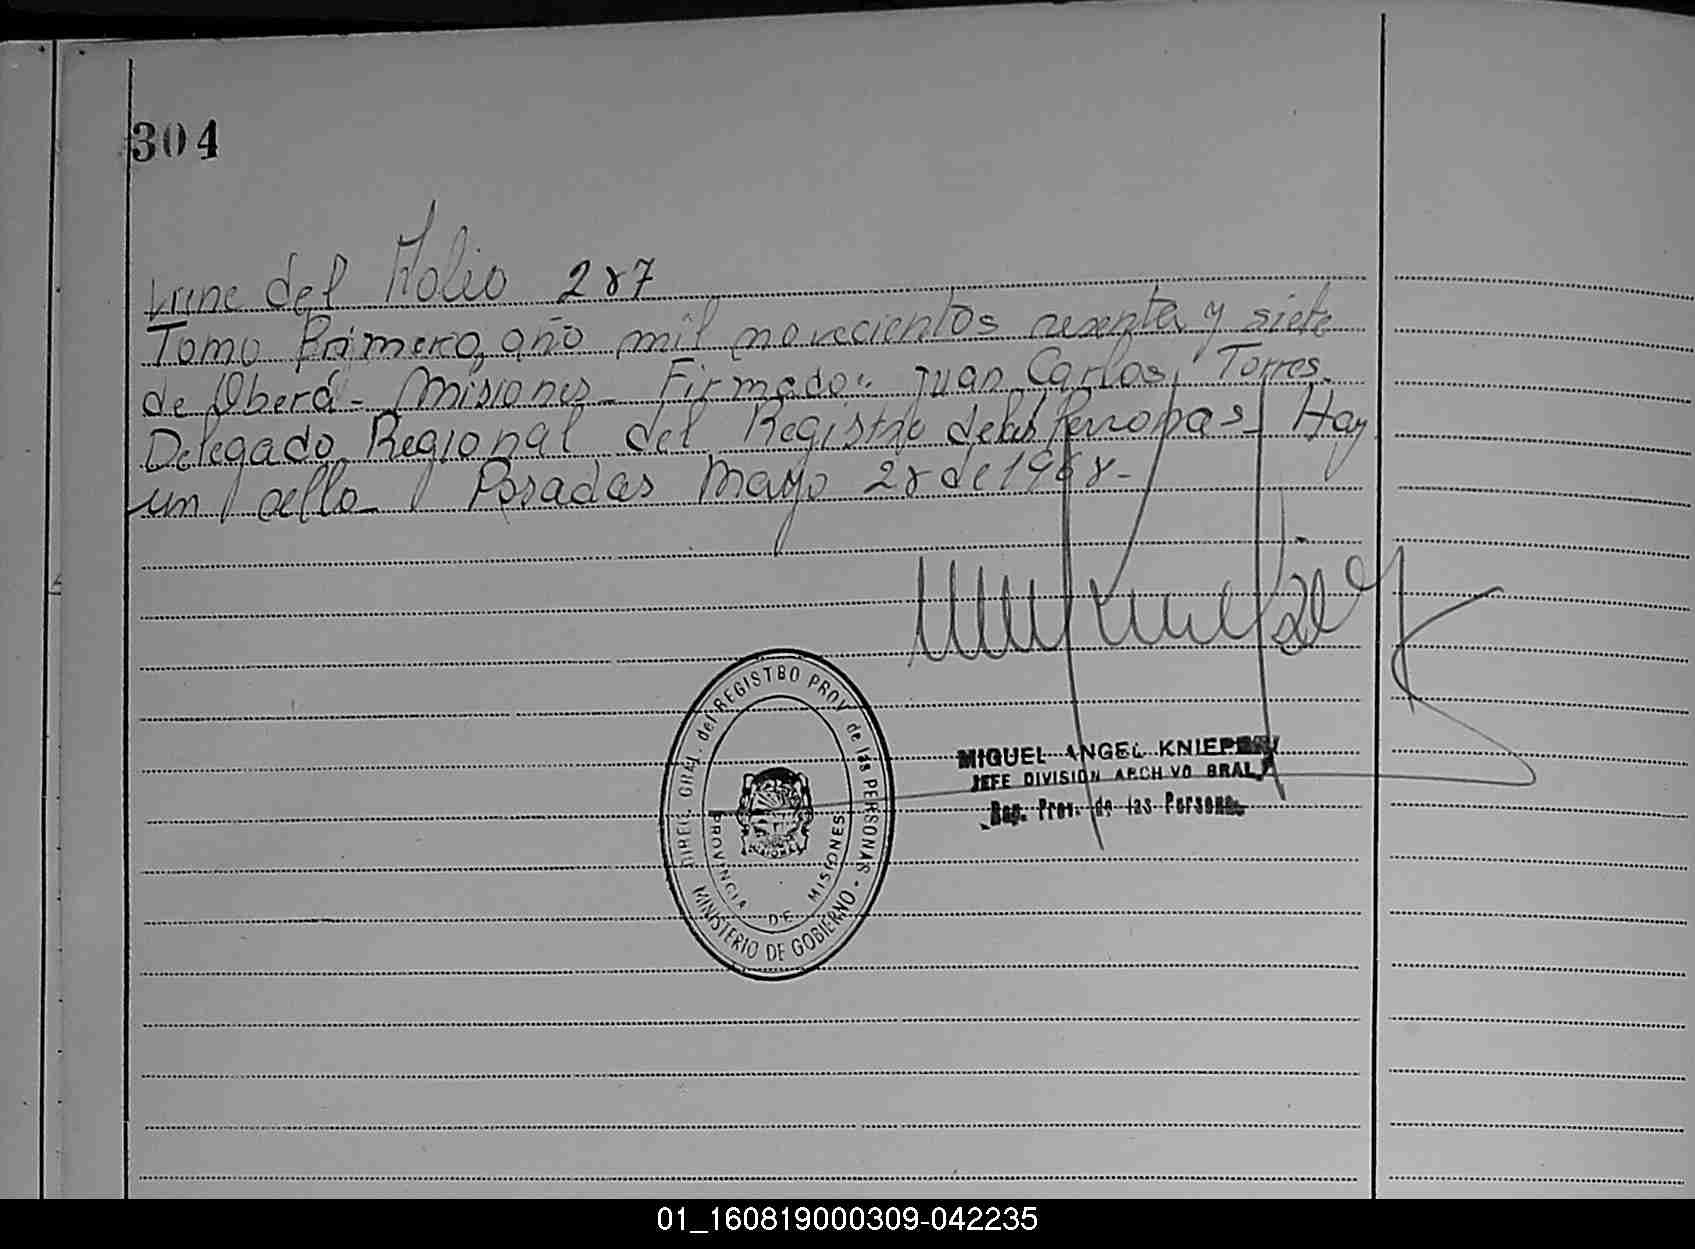 304
Viene del Folio 287
Tomo Primero, año mil novecientos sesenta y siete
de Oberá - Misiones - Firmado: Juan Carlos Torres
Delegado Regional del Registro de las Personas - Hay
un sello - Posadas Mayo 28 de 1968 -
DIREC. GRAL. del REGISTRO PROV. de las PERSONAS -
MINISTERIO DE GOBIERNO
PROVINCIA DE MISIONES
MIGUEL ANGEL
JEFE DIVISION ARCHIVO GRAL.
Reg. Prov. de las Personas
01_160819000309-042235